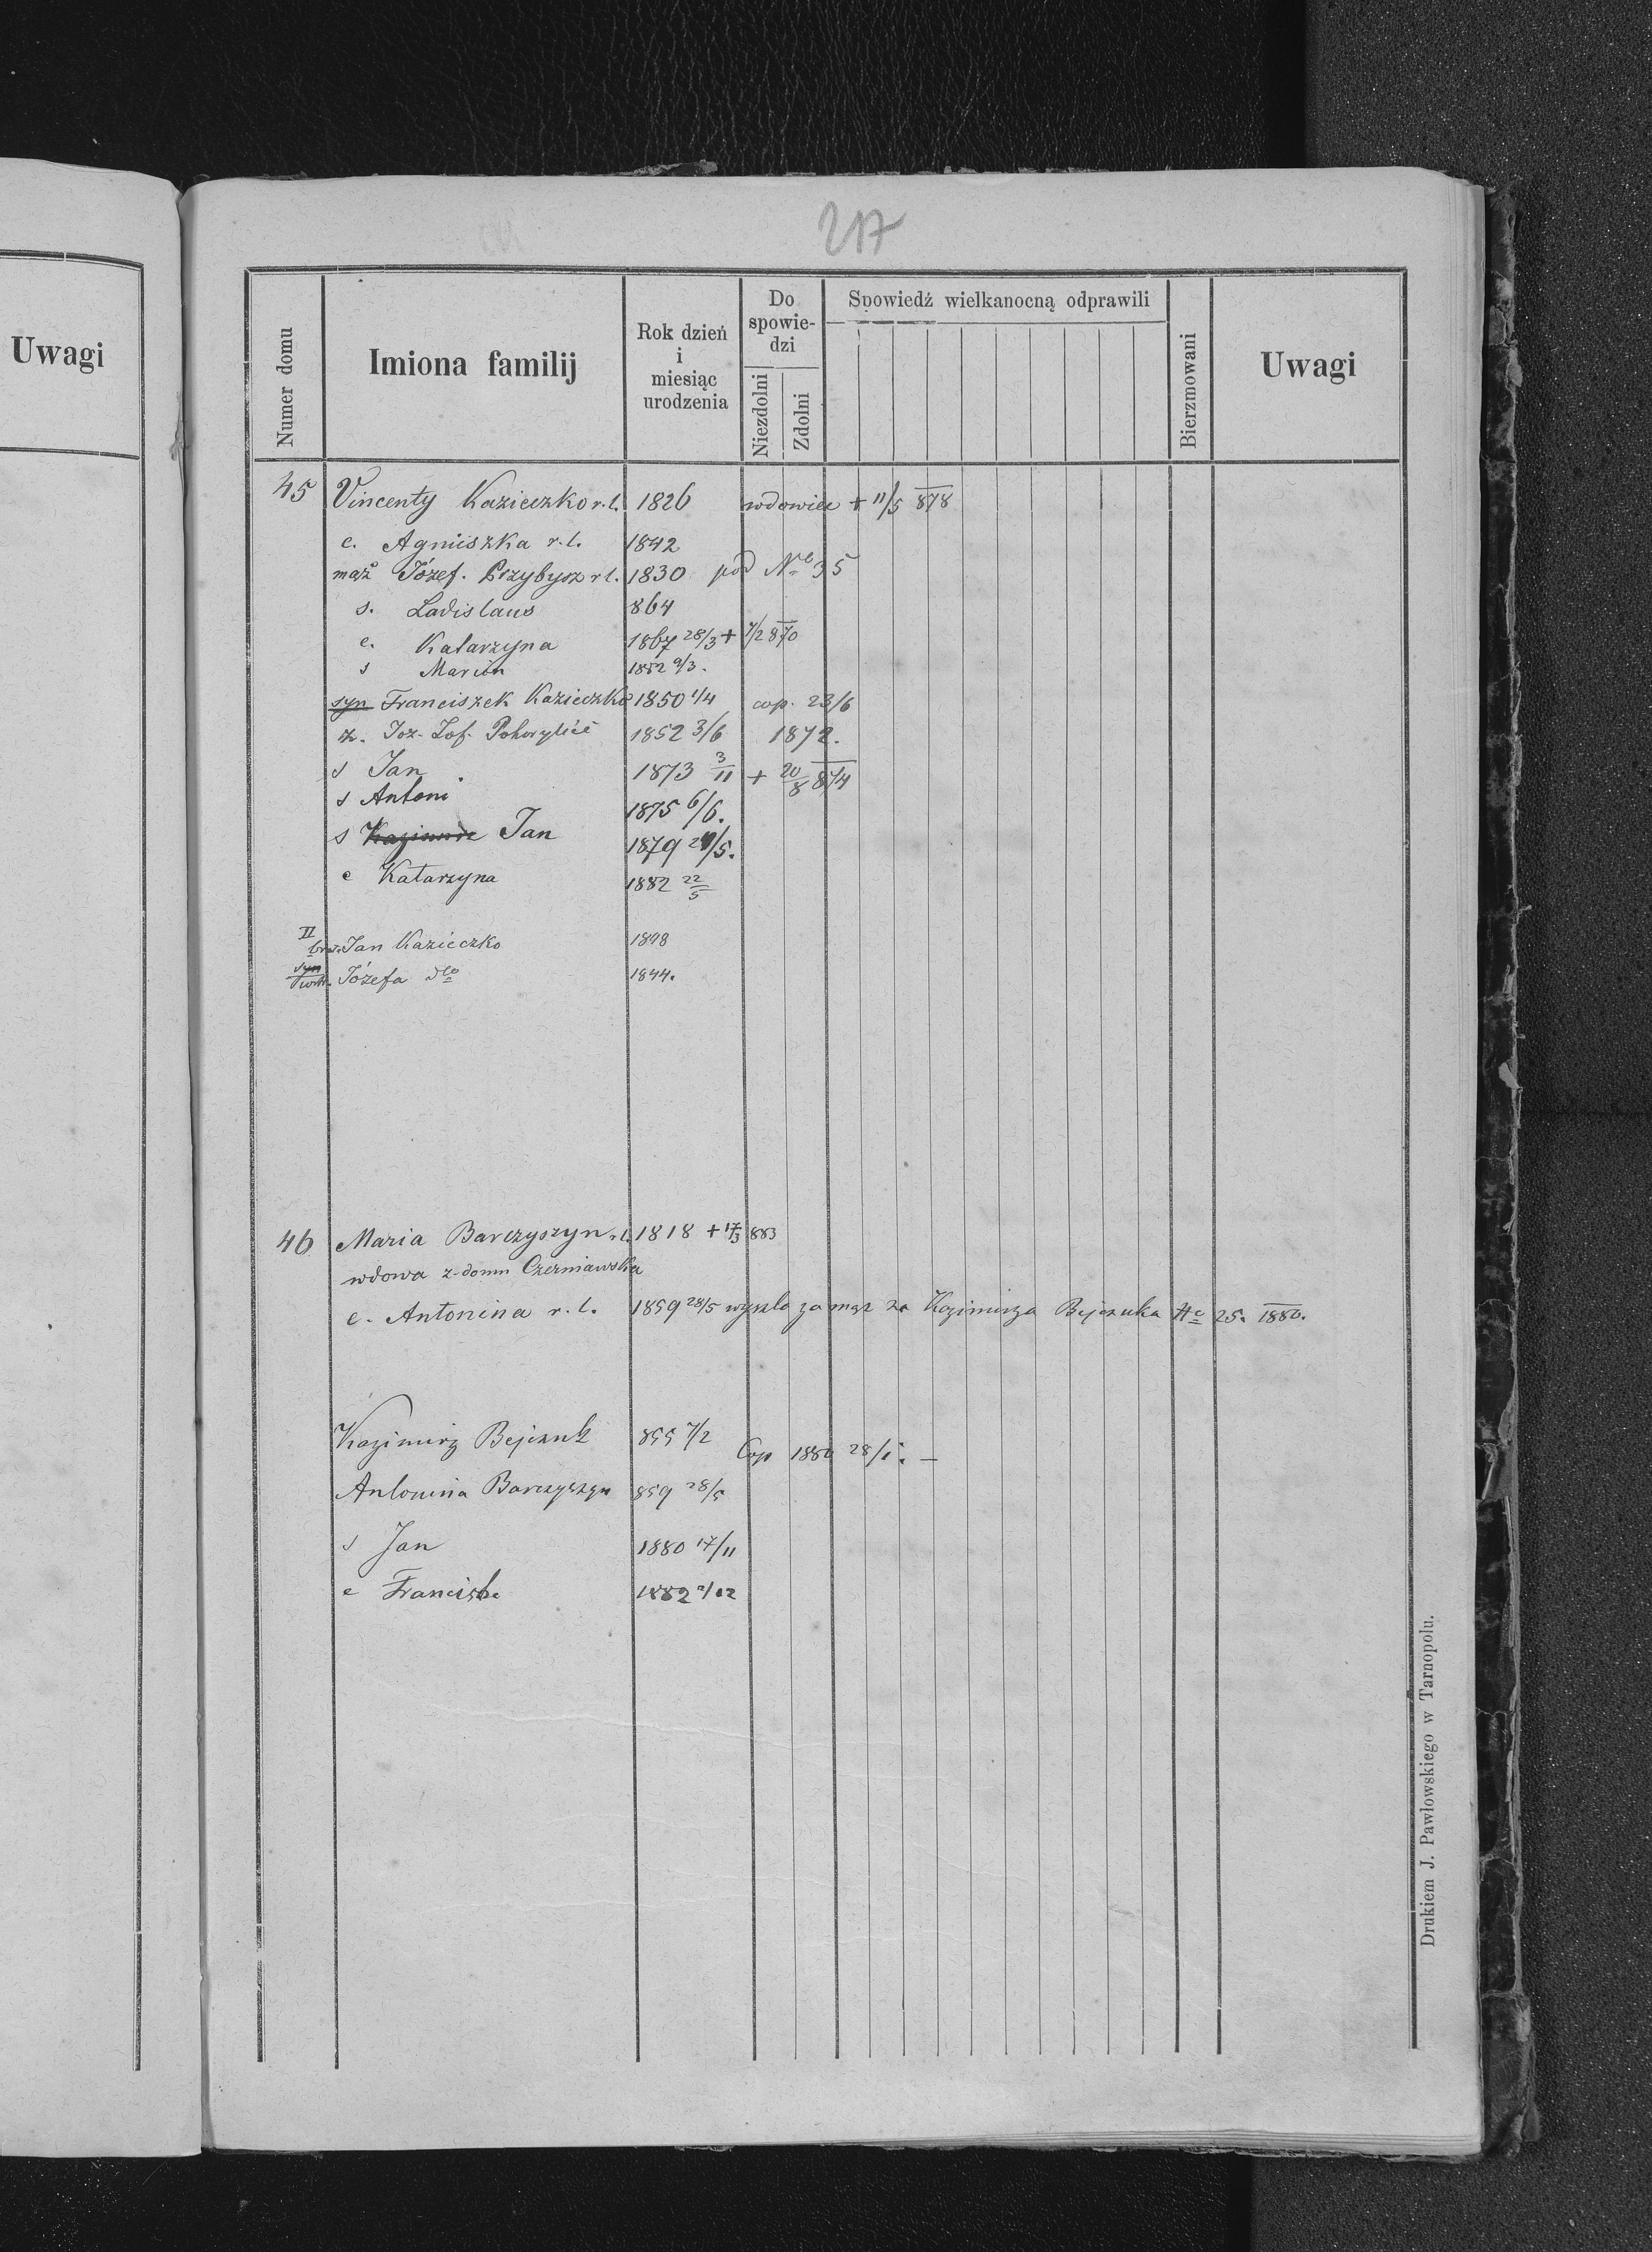 217
Uwagi
Numer domu
Imiona familij
Rok dzień i miesiąc urodzenia
Do spowiedzi
Niezdolni
Zdolni
Spowiedź wielkanocną odprawili
Bierzmowani
Uwagi
45 Vincenty Kazieczko r.l. 1826 wdowiec + 11/5 878
c. Agniszka r.l. 1842
mąż Józef Przybysz r l. 1830 pod No 35
s. Ladislaus 864
c. Katarzyna 1867 28/3 + 7/2 870
s Marcin 1852 9/3.
syn Franciszek Kazieczko 1850 1/4 cop. 23/6
ż. Joz. Zof. 1852 3/6 1872.
s Jan 1873 3/11 + 20/8 874
s Antoni 1875 6/6.
s Kazimirz Jan 1879 /5.
c Katarzyna 1882 22/5
II
Jan Kazieczko 1848
syn
Józefa dto 1844.
46 Maria Barczyszyn r.l. 1818 + 17/3 883
wdowa z domu Czerniawska
c. Antonina r.l. 1859 28/5 wyszła za mąż za Kazimirza Bejczuka 25. 1880.
Kazimirz Bejczuk 855 7/2
Cop 1880 28/1. —
Antonina Barczyszyn 859 28/5
s Jan 1880 17/11
c Franciska 1882 2/12
Drukiem J. Pawłowskiego w Tarnopolu.